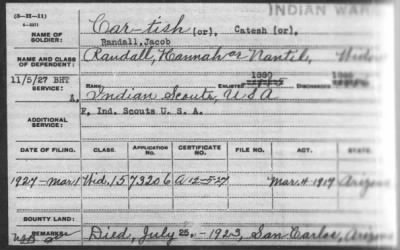 (3-H-11)
INDIAN WAR
NAME OF SOLDIER: Car-tish [or], Catesh [or],
Randall, Jacob
NAME AND CLASS OF DEPENDENT: Randall, Hannah or Nantil, Wido
11/5/27 BHT
SERVICE: RANK ENLISTED 1880 DISCHARGED
A, Indian Scouts, U.S.A
ADDITIONAL SERVICE: F, Ind. Scouts U. S. A.
DATE OF FILING. CLASS. APPLICATION NO. CERTIFICATE NO. FILE NO. ACT. STATE.
1927-Mar 1 Wid. 1573206 A 12-5-27 Mar. 4 1917 Arizona
BOUNTY LAND:
REMARKS: Died, July 25, 1923, San Carlos, Arizona